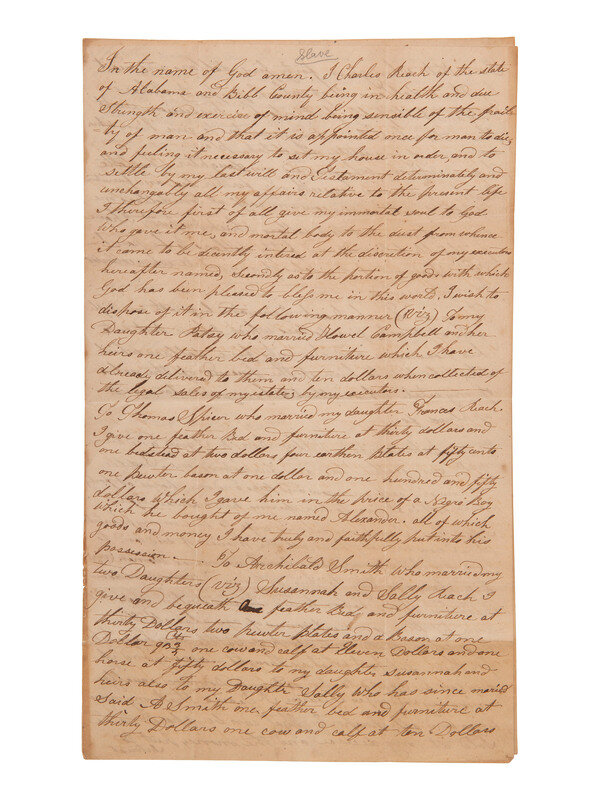 Slave
In the name of God amen. I Charles Reach of the state
of Alabama and Bibb County being in health and due
Strength and exercise of mind being sensible of the frail
ty of man and that it is appointed once for man to die,
and feeling it necessary to set my house in order, and to
settle by my last will and Testament determinately and
unchangably all my affairs relative to the present life
I therefore first of all give my immortal soul to God
Who gave it me, and mortal body to the dust from whence
it came to be decently intered at the discretion of my executors
hereafter named, secondly as to the portion of goods with which
God has been pleased to bless me in this world, I wish to
dispose of it in the following manner (Viz) To my
Daughter Patsy who married Howel Campbell and her
heirs one feather bed and furniture which I have
already delivered to them and ten dollars when collected of
the legal sales of my estate, by my executors.
To Thomas Spicer who married my daughter Frances Reach
I gave one feather Bed and furniture at thirty dollars and
one bedstead at two dollars four earthen plates at fifty cents
one Pewter bason at one dollar and one hundred and fifty
dollars Which I gave him in the price of a Negro Boy
which he bought of me named Alexander. all of which
goods and money I have truly and faithfully put into his
possession. To Archibald Smith who married my
two Daughters (viz) Susannah and Sally Reach I
give and bequeath feather Bed, and furniture at
thirty Dollars two pewter plates and a Bason at one
Dollar one cow and calf at Eleven Dollars and one
horse at fifty dollars to my daughter Susannah and
heirs also to my Daughter Sally Who has since maried
Said A Smith one feather bed and furniture at
thirty Dollars one cow and calf at ten Dollars